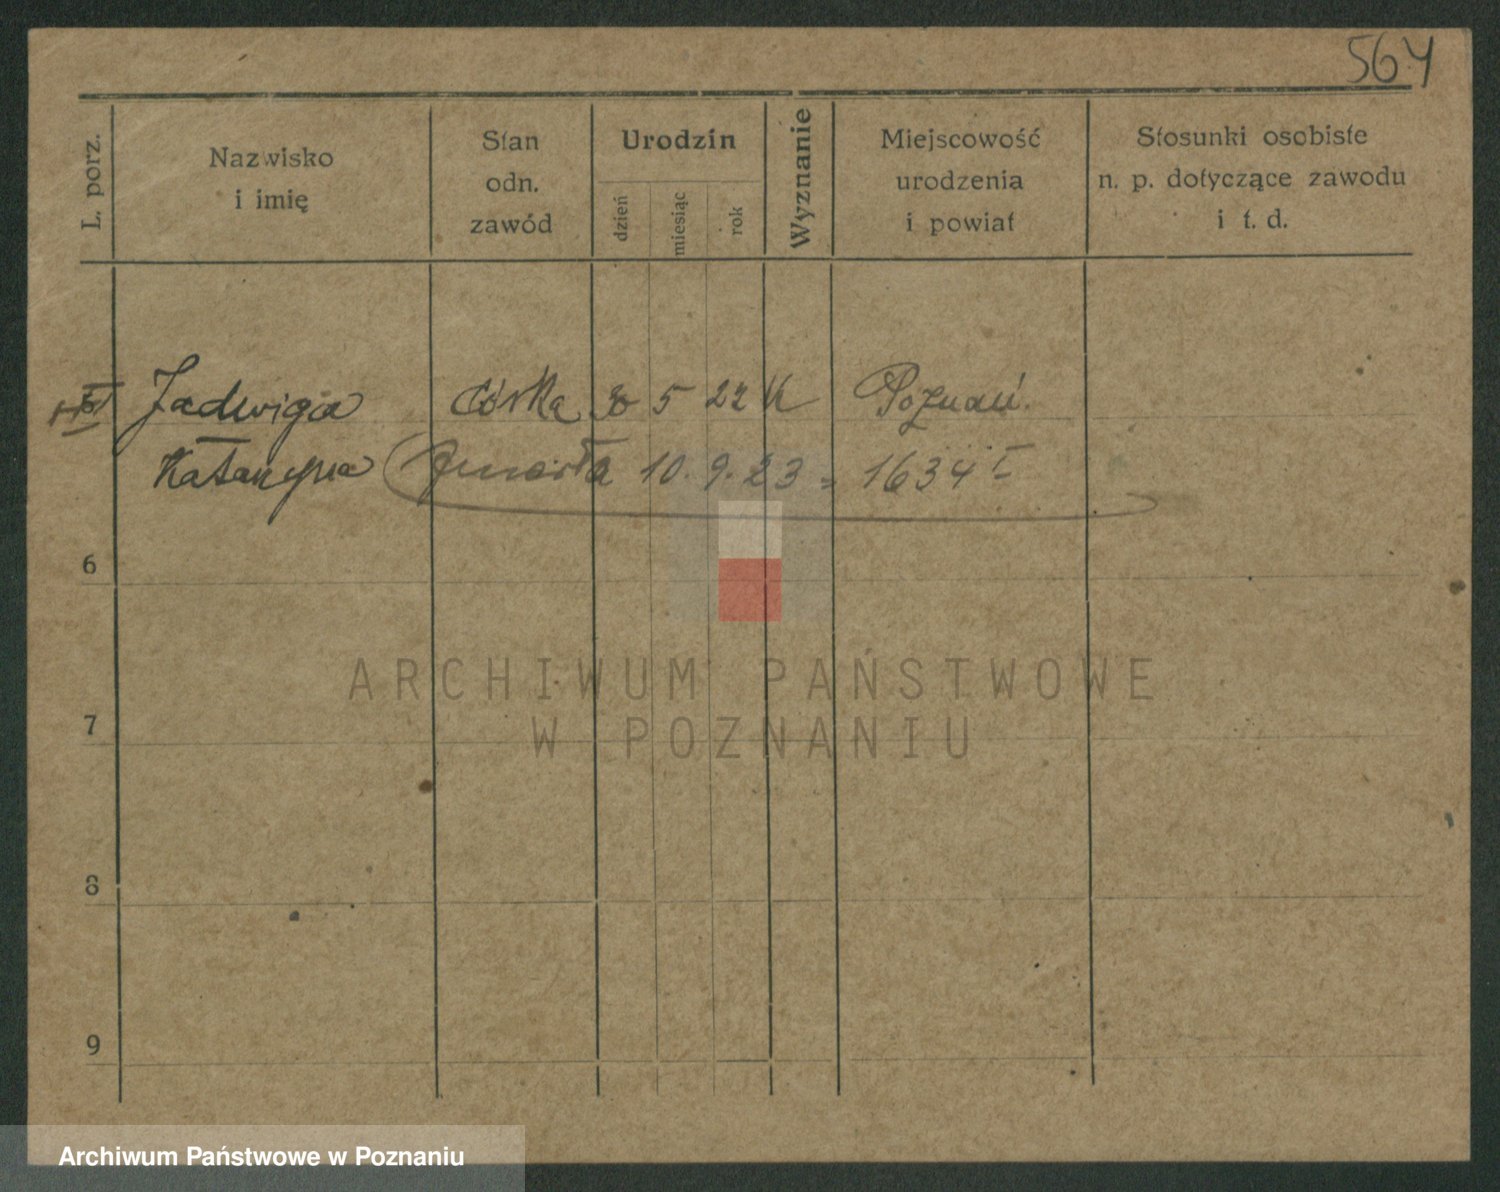 564
L. porz.
Nazwisko
i imię
Stan
odn.
zawód
Urodzin
dzień
miesiąc
rok
Wyznanie
Miejscowość
urodzenia
i powiat
Stosunki osobiste
n. p. dotyczące zawodu
i t. d.
Jadwiga Córka 5 22 K Poznań.
Katarzyna (zmarła 10.9.23 = 1634 I
6
7
8
9
ARCHIWUM PAŃSTWOWE
W POZNANIU
Archiwum Państwowe w Poznaniu